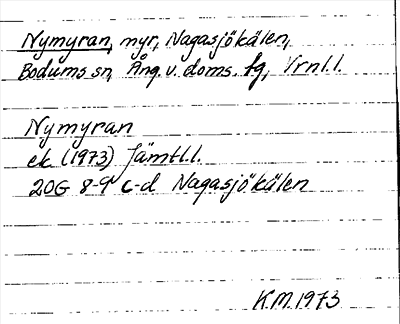 Nymyran, myr, Nagasjökälen,
Bodums sn, Ång. v. doms. fg, Vrnl.l.
Nymyran
ek (1973) Jämtl.l.
20G 8-9 c-d Nagasjökälen
K.M. 1973